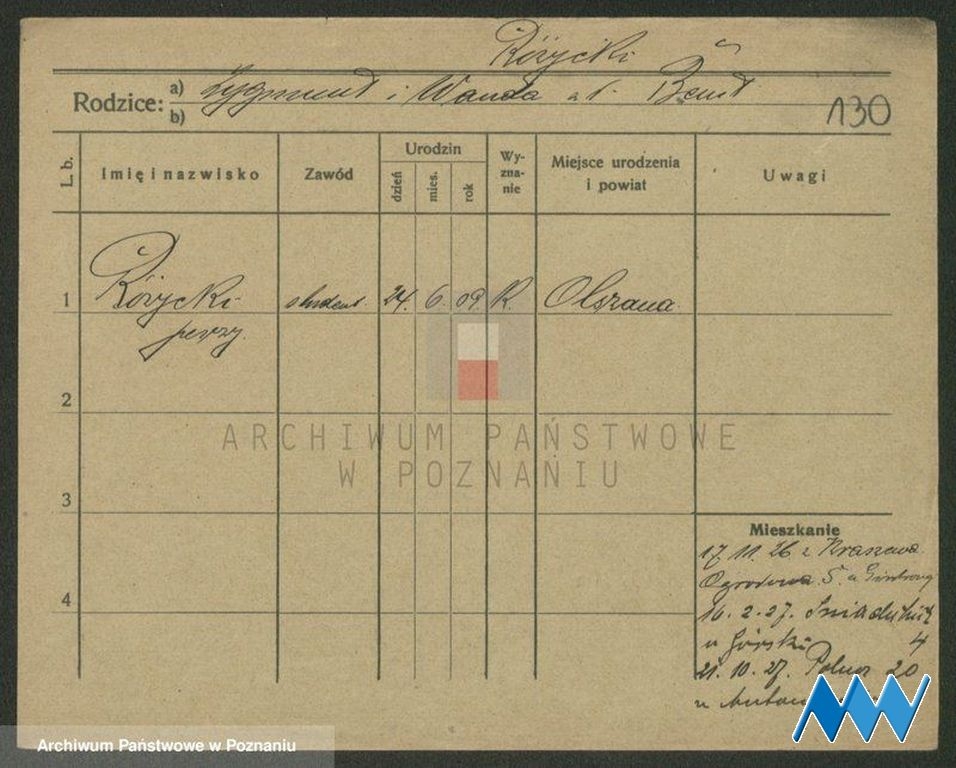 Różycki
Rodzice: a) Zygmunt i Wanda
b)
130
L. b. Imię i nazwisko Zawód Urodzin dzień mies. rok Wy-zna-nie Miejsce urodzenia i powiat Uwagi
1 Różycki student 24. 6. 09. R. Olszana
Jerzy
2
ARCHIWUM PAŃSTWOWE
W POZNANIU
3
Mieszkanie
17. 11. 26 z
Ogrodowa 5.
4
16. 2. 27. Śniadeckich
u Górski 4
21. 10. 27. Polna 20
u
Archiwum Państwowe w Poznaniu